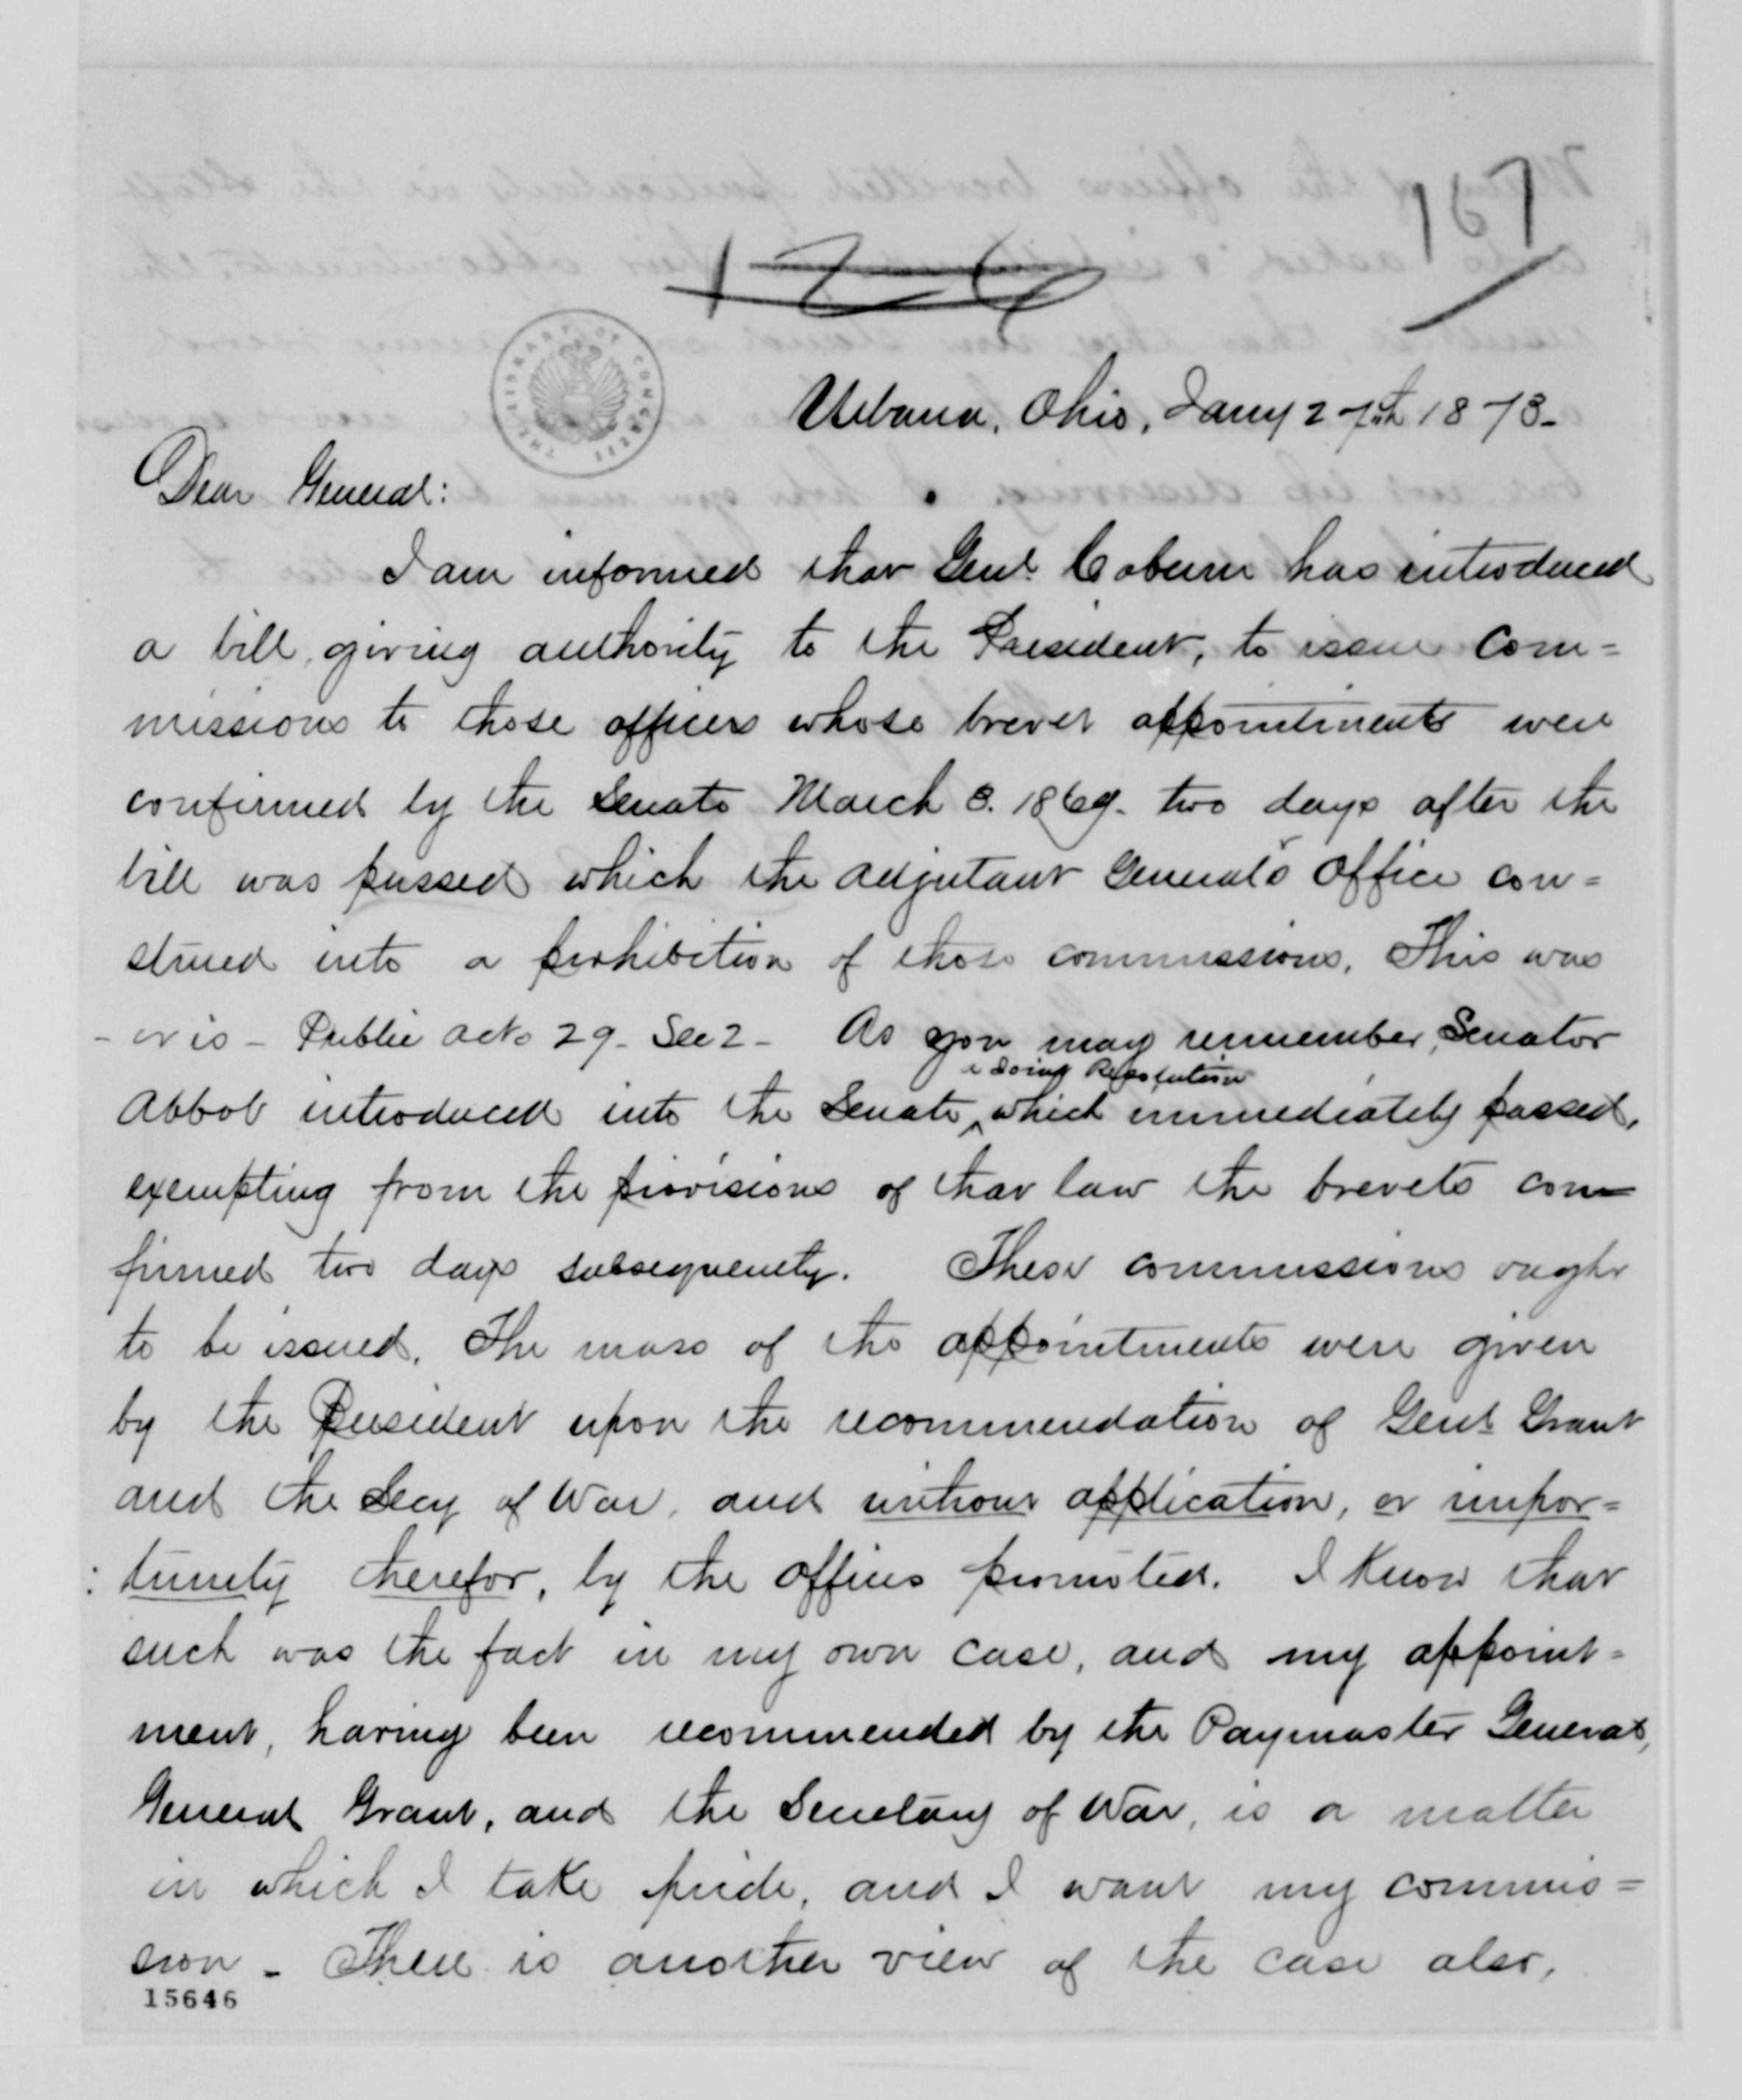 167
126
THE LIBRARY OF CONGRESS
Urbana, Ohio, Jany 27th 1873.
Dear General:
I am informed that Genl. Coburn has introduced
a bill, giving authority to the President, to issue com=
missions to those officers whose brevet appointments were
confirmed by the Senate March 3. 1869. two days after the
bill was passed which the Adjutant General's Office con=
strued into a prohibition of those commissions. This was
- or is - Public act No 29 - Sec 2 - As you may remember, Senator
a Joint Resolution
Abbot introduced into the Senate, ^ which immediately passed,
exempting from the provisions of that law the brevets con
firmed two days subsequently. These commissions ought
to be issued. The mass of the appointments were given
by the President upon the recommendation of Genl Grant
and the Secy of War, and without application, or impor=
: tunity therefor, by the officers promoted. I know that
such was the fact in my own case, and my appoint=
ment, having been recommended by the Paymaster General,
General Grant, and the Secretary of War, is a matter
in which I take pride, and I want my commis=
sion - There is another view of the case also,
15646